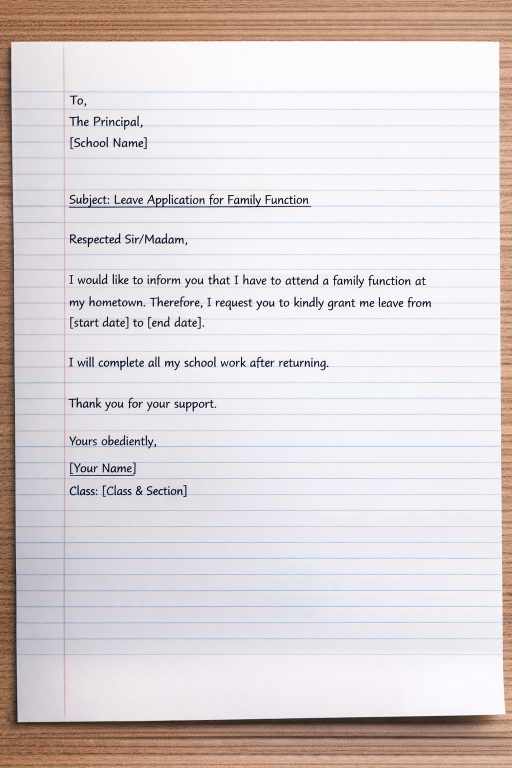 To,
The Principal,
[School Name]
Subject: Leave Application for Family Function
Respected Sir/Madam,
I would like to inform you that I have to attend a family function at
my hometown. Therefore, I request you to kindly grant me leave from
[start date] to [end date].
I will complete all my school work after returning.
Thank you for your support.
Yours obediently,
[Your Name]
Class: [Class & Section]